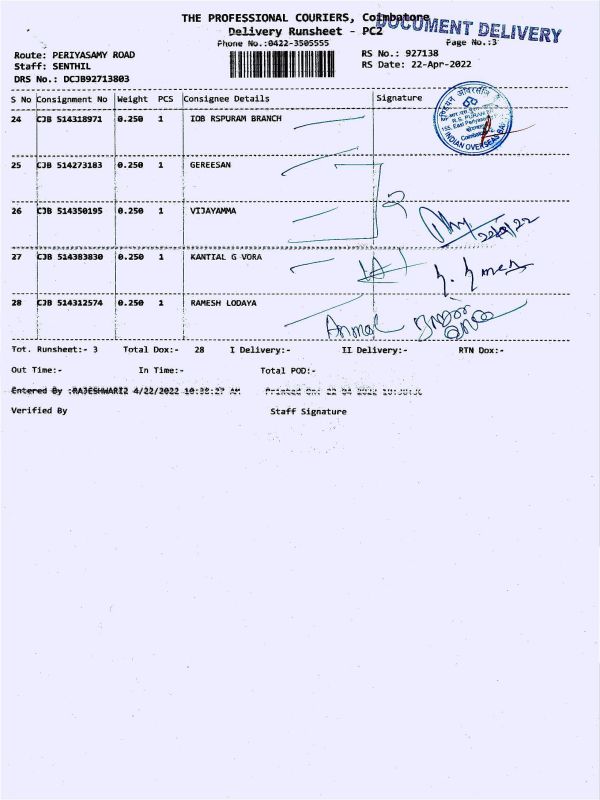 THE PROFESSIONAL COURIERS, Coimbatore
DOCUMENT DELIVERY
Delivery Runsheet - PC2
Phone No.:0422-3505555
Page No.:3
Route: PERIYASAMY ROAD
RS No.: 927138
Staff: SENTHIL
RS Date: 22-Apr-2022
DRS No.: DCJB92713803
S No Consignment No Weight PCS Consignee Details Signature
24 CJB 514318971 0.250 1 IOB RSPURAM BRANCH
INDIAN OVERSEAS BANK
25 CJB 514273183 0.250 1 GEREESAN
26 CJB 514350195 0.250 1 VIJAYAMMA
22/4/22
27 CJB 514383830 0.250 1 KANTIAL G VORA
28 CJB 514312574 0.250 1 RAMESH LODAYA
Anmol
Tot. Runsheet:- 3 Total Dox:- 28 I Delivery:- II Delivery:- RTN Dox:-
Out Time:- In Time:- Total POD:-
Entered By :RAJESHWARI2 4/22/2022 10:38:27 AM Printed On: 22 04 2022 10:38:36
Verified By Staff Signature